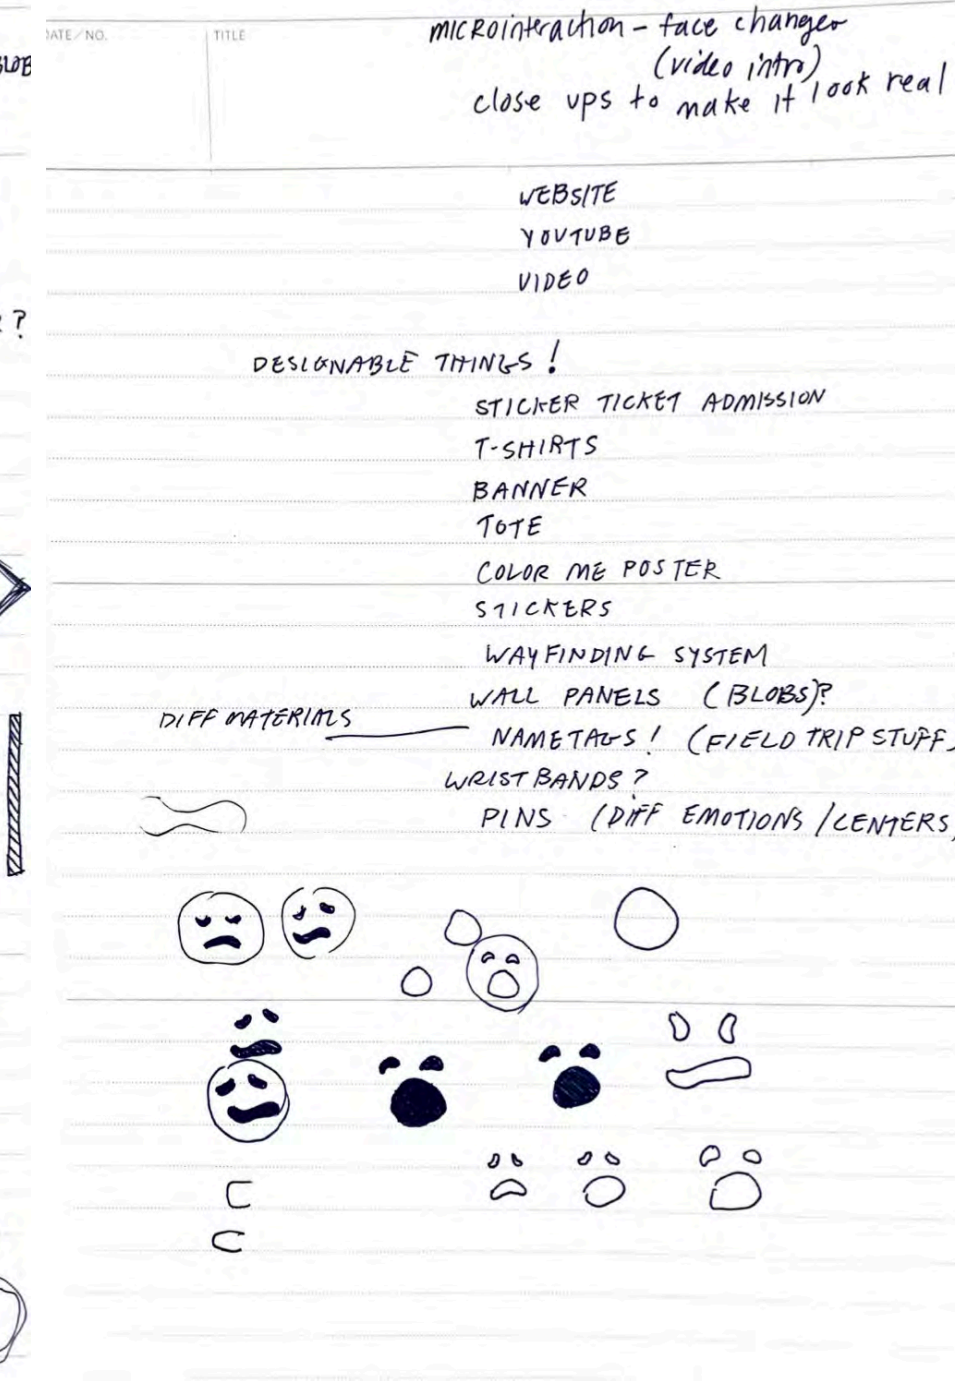 BLOB
DATE/NO.
TITLE
MICROinteraction – face changer
(video intro)
close ups to make it look real
WEBSITE
YOUTUBE
VIDEO
?
DESIGNABLE THINGS!
STICKER TICKET ADMISSION
T-SHIRTS
BANNER
TOTE
COLOR ME POSTER
STICKERS
WAYFINDING SYSTEM
WALL PANELS (BLOBS)?
DIFF MATERIALS
NAMETAGS! (FIELD TRIP STUFF)
WRISTBANDS?
PINS (DIFF EMOTIONS/CENTERS)